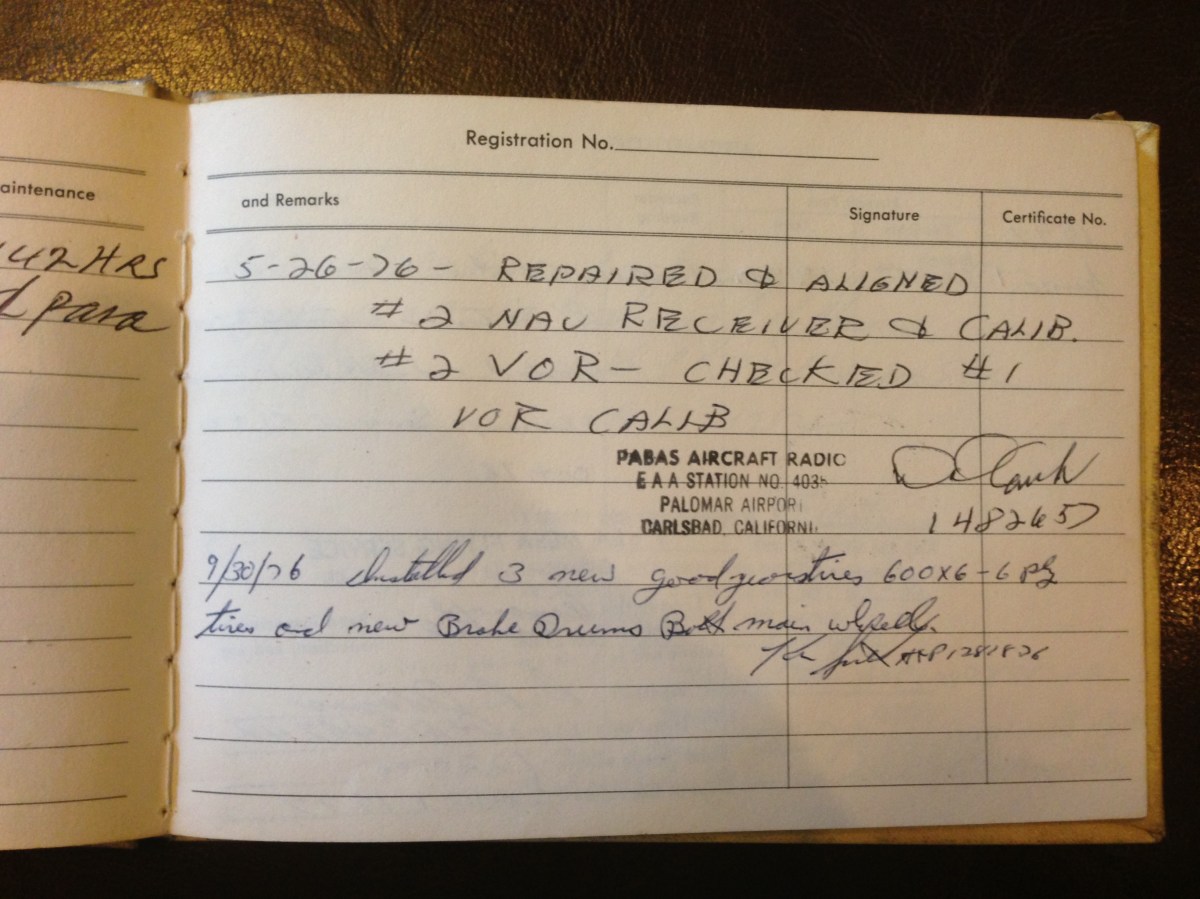 Registration No.
aintenance
and Remarks
Signature
Certificate No.
42 HRS
5-26-76- REPAIRED & ALIGNED
para
#2 NAV RECEIVER & CALIB.
#2 VOR- CHECKED #1
VOR CALIB
PABAS AIRCRAFT RADIO
E A A STATION NO. 403
PALOMAR AIRPORT
CARLSBAD, CALIFORNI
1482657
9/30/76 Installed 3 new goodyear tires 600x6-6 ply
tires and new Brake Drums Both main wheells.
A&P 1281826